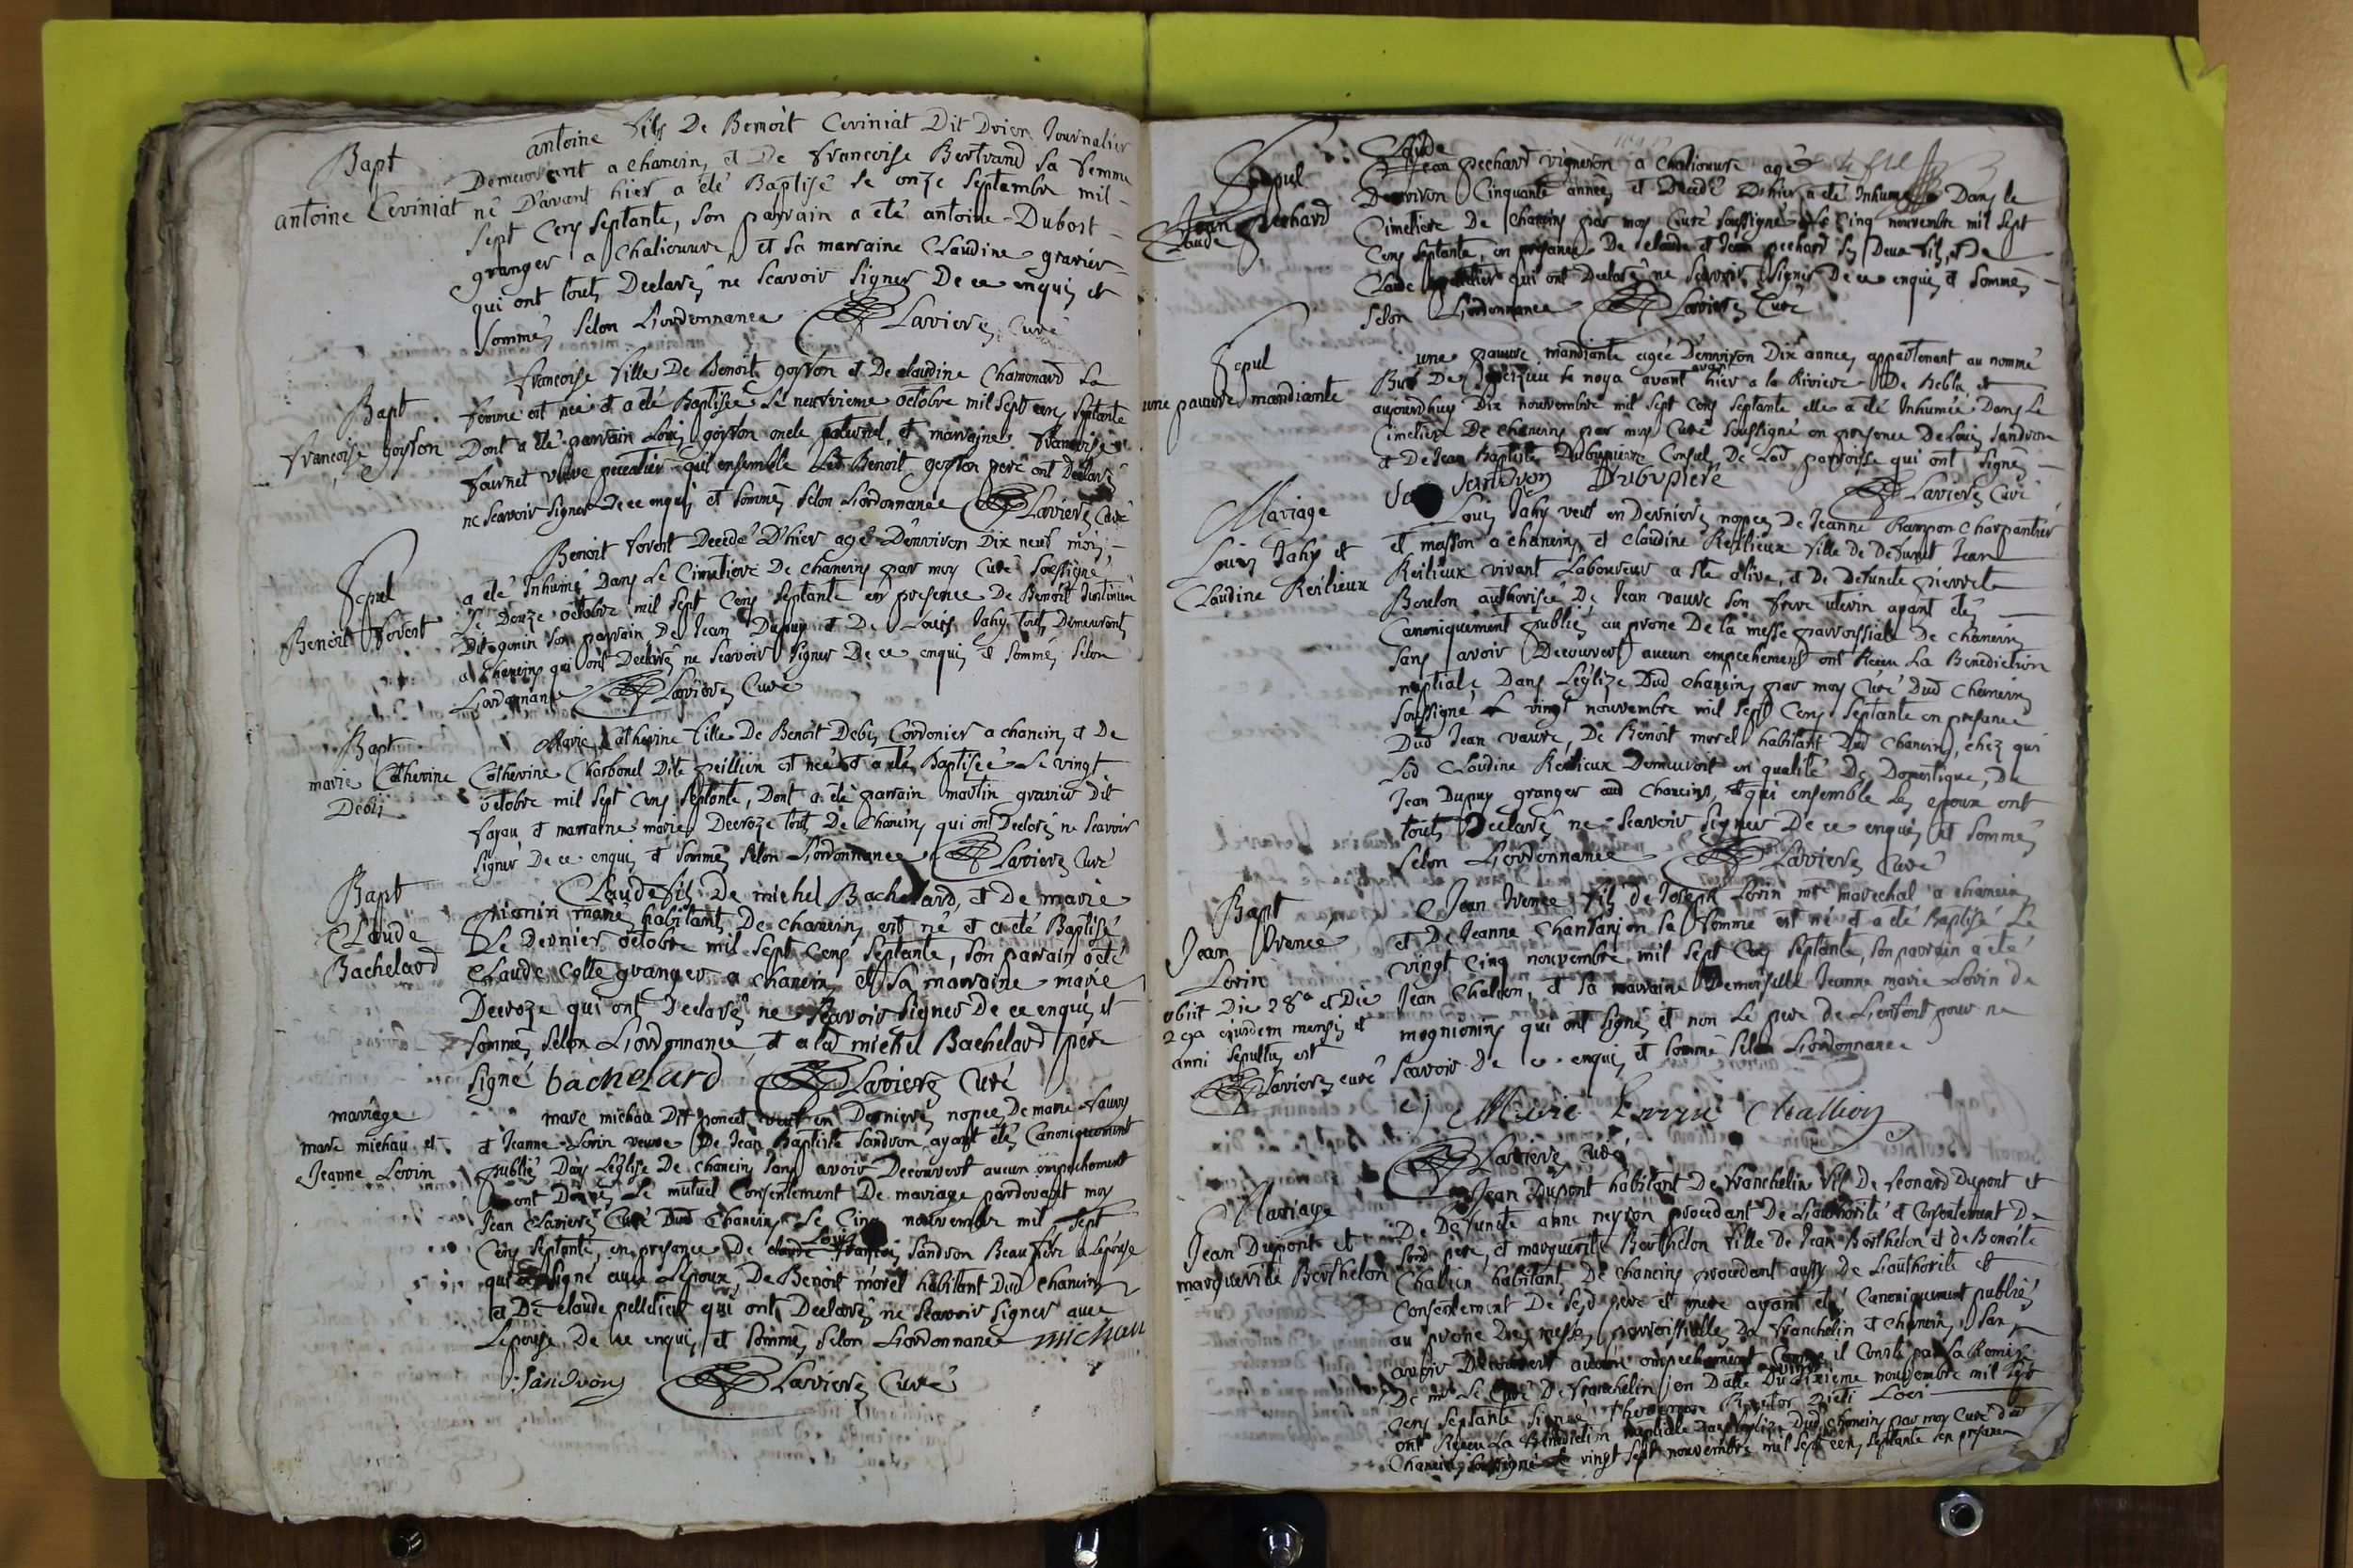 Bapt
antoine Ceviniat
antoine fils De Benoît Ceviniat Dit Drier Journalier
Demeurant a chanein, et De francoise Bertrand sa femme
né D'avant hier a été Baptisé le onze septembre mil
sept Cens septante, son parrain a été antoine Dubost
granger a Chaliouvre, et sa marraine Claudine gravier
qui ont touts Declaré ne scavoir signer De ce enquis et
sommés selon L'ordonnance Laviere Curé
Bapt
francoise goyffon
francoise fille De Benoît goyffon et De claudine Chamonard sa
femme est née et a été Baptisée Le neufvieme octobre mil sept cens septante
Dont a été parrain Louis goyffon oncle paternel, et marraine francoise
fournet veuve qui ensemble Led Benoit goyffon pere ont Declaré
ne scavoir signer de ce enquis et sommés selon L'ordonnance Laviere Curé
Sepul
Benoit forest
Benoit forest Decedé D'hier agé D'environ Dix neuf mois
a été Inhumé Dans Le Cimetiere De chaneins par moy Curé soussigné
Le Douze octobre mil sept Cens septante en presence De Benoit
Dit gonin son parrain De Jean Dupuy et De Louis Jahy touts Demeurants
a chaneins qui ont Declaré ne scavoir signer De ce enquis et sommés selon
L'ordonnance Laviere Curé
Bapt
marie Catherine
Debis
Marie Catherine fille De Benoit Debis Cordonier a chanein, et De
Catherine Charbonel Dite peillien est née et a été Baptisée Le vingt
octobre mil sept Cens septante, Dont a été parrain martin gravier dit
fayau et marraine marie Decroze touts De Chanein, qui ont Declaré ne scavoir
signer De ce enquis et sommés selon L'ordonnance Laviere Curé
Bapt
Claude
Bachelard
Claude fils De michel Bachelard, et De marie
mariés habitants De chanein, est né et a été Baptisé
Le Dernier octobre mil sept Cens septante, son parrain a été
Claude Cotte granger a chanein et sa marraine marie
Decroze qui ont Declaré ne scavoir signer De ce enquis et
sommés selon L'ordonnance et a led michel Bachelard pere
signé bachelard Laviere Curé
mariage
marc michau et
Jeanne Lorin
marc michau Dit poncet veuf en Dernieres nopces De marie
et Jeanne Lorin veuve De Jean Baptiste sandron ayant étés Canoniquement
publiés Dans L'église De chanein sans avoir Decouvert aucun empechement
ont Donnés Le mutuel Consentement De mariage pardevant moy
Jean Laviere Curé Dud Chanein, Le Cinq nouvembre mil sept
Cens septante, en presance De Louis sandron Beau frere a L'epouse
qui a signé avec L'epoux, De Benoit morel habitant Dud Chanein
et De claude pelletier qui ont Declaré ne scavoir signer avec
L'epouse, De ce enquis et sommés selon L'ordonnance michau
sandron Laviere Curé
Sepul
Jean pechard
Claude
Claude
Jean pechard vigneron a Chaliouvre agé
D'environ Cinquante années et Decedé D'hier a été Inhumé Dans le
Cimetiere De Chaneins par moy Curé soussigné Le Cinq nouvembre mil sept
Cens septante, en presance De claude et Jean pechard ses Deux fils, et De
Claude qui ont Declaré ne scavoir signer De ce enquis et sommés
selon L'ordonnance Laviere Curé
Sepul
une pauvre mandiante
une pauvre mandiante agée D'environ Dix années appartenant au nommé
avant
De se noya avant hier a la Riviere De et
aujourdhuy Dix nouvembre mil sept Cens septante elle a été Inhumée Dans Le
Cimetiere De chaneins par moy Curé soussigné en presence De Louis sandron
et De Jean Baptiste Consul De Lad parroisse qui ont signé
sandron Laviere Curé
Mariage
Louis Jahy et
Claudine Reilieux
Louis Jahy veuf en Dernieres nopces De Jeanne Rampon Charpantier
et masson a chanein, et Claudine Reilieux fille De Defunt Jean
Reilieux vivant Laboureur a ste olive, et De Defuncte pierrette
Boulon authorisée De Jean vauve son frere uterin ayant étés
Canoniquement publiés au prone De la messe parroissiale De chanein
sans avoir Decouvert aucun empechement ont Receu La Benediction
nuptiale Dans L'eglize Dud chanein par moy Curé Dud Chanein
soussigné Le vingt nouvembre mil sept Cens septante en presance
Dud Jean vauve, De Benoit morel habitant Dud Chanein, chez qui
Lad Claudine Reilieux Demeuroit en qualité De Domestique, De
Jean Dupuy granger aud Chanein, et qui ensemble Les epoux ont
touts Declaré ne scavoir signer De ce enquis et sommés
selon L'ordonnance Laviere Curé
Bapt
Jean Irenée
Lorin
obiit Die 28a et Die
29a ejusdem mensis et
anni sepultus est
Laviere curé
Jean Irenée fils de Joseph Lorin mtre marechal a chanein
et De Jeanne Chantanjon sa femme est né et a été Baptisé Le
vingt Cinq nouvembre mil sept Cens septante, son parrain a été
Jean Challion, et sa marraine Demoiselle Jeanne marie Lorin de
mognienins qui ont signé et non Le pere de L'enfant pour ne
scavoir De ce enquis et sommé selon L'ordonnance
Marie Lorin Challion
Laviere Curé
Mariage
Jean Dupont et
marguerite Berthelon
Jean Dupont habitant De franchelin fils De Leonard Dupont et
De Defuncte anne neyron procedant De L'authorité et Consentement De
sond pere, et marguerite Berthelon fille De Jean Berthelon et de Benoite
Challien habitants De chaneins procedant aussy De L'authorité et
Consentement De sesd pere et mere ayant étés Canoniquement publiés
au prone Des messes parroissialles De franchelin et chanein, sans
avoir Decouvert aucun empechement Comme il Conste par La Remise
De mr Le Curé De franchelin en Datte Du nouvembre mil sept
cens septante signé Rector Dicti Loci
ont Receu La Benediction nuptiale Dans L'eglize Dud Chanein par moy Curé dud
Chanein soussigné Le vingt sept nouvembre mil sept cens septante en presance